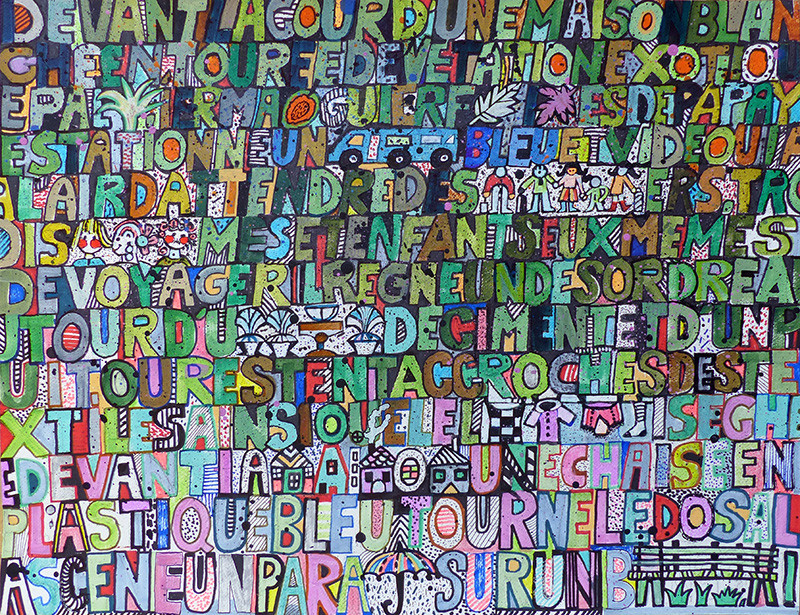 DEVANTLACOURDUNEMAISONBLAN
CHEENTOUREEDEVETATIONEXOTIQ
EPA ERMA GUIERF ESDEPAPAY
ESTATIONNEUN BLEUETVIDEQUIA
LAIRDATTENDREDIS ERS,TRO
DIS MESETENFANTSEUXMEMES
DEVOYAGERILREGNEUNDESORDREA
UTOURDU DECIMENTETDUNP
UITOURESTENTACCROCHESDESTE
XTILESAINSIQUELEL ISEGHE
EDEVANTLA UNECHAISEEN
PLASTIQUEBLEUTOURNELEDOSAL
ASCENEUNPARA SURUNB